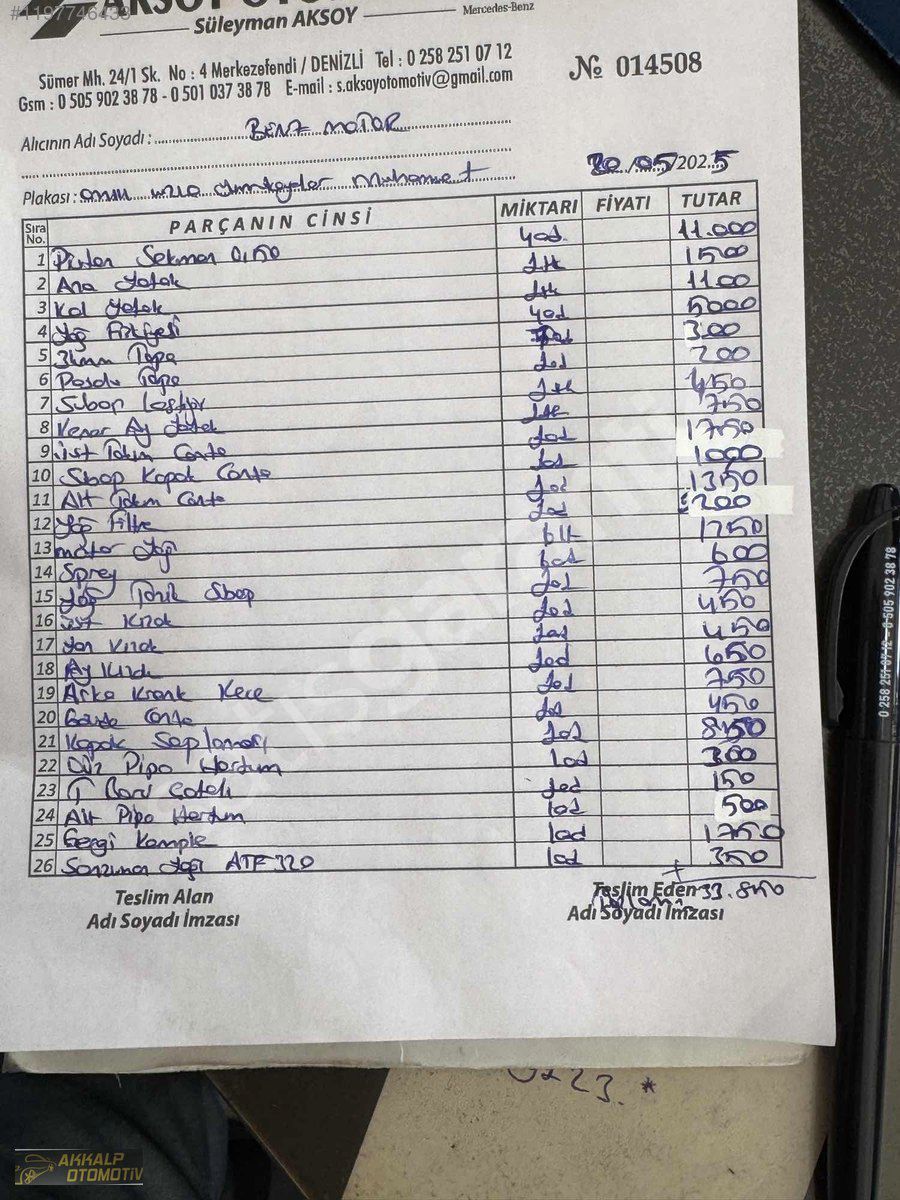 #1197746433
AKSOY OTO
Süleyman AKSOY
Mercedes-Benz
Sümer Mh. 24/1 Sk. No : 4 Merkezefendi / DENİZLİ Tel : 0 258 251 07 12
Gsm : 0 505 902 38 78 - 0 501 037 38 78 E-mail : s.aksoyotomotiv@gmail.com
№ 014508
Alıcının Adı Soyadı : BENZ MOTOR
20/05/2025
Plakası : Muhammet
Sıra No. PARÇANIN CİNSİ MİKTARI FİYATI TUTAR
1 Piston Sekman 0,50 4ad. 11.000
2 Ana Yatak 1tk 1500
3 Kol Yatak 1tk 1100
4 Yağ Fıskiyesi 4ad 5000
5 34mm Tapa 300
6 Tapa 1ad 200
7 Subap Lastiği 1tk 450
8 Kenar Ay Yatak 1tk 750
9 Üst Takım Conta 1ad 1750
10 Sbap Kapak Conta 1ad 1000
11 Alt Takım Conta 1ad 1350
12 Yağ Filtre 1ad 200
13 motor Yağı 6lt 1250
14 Sprey 6ad 600
15 Yağ Sbap 1ad 750
16 Üst Kızak 1ad 450
17 Yan Kızak 1ad 450
18 Ay Kızak 1ad 650
19 Arka Krank Kece 1ad 750
20 Conta 1ad 450
21 Kapak Saplaması 1ad 850
22 Düz Pipo Hortum 1ad 300
23 T 1ad 150
24 Alt Pipo Hortum 1ad 500
25 Gergi Komple 1ad 1750
26 Sanzıman Yağı ATF 320 1ad 350
33.850
Teslim Alan
Adı Soyadı İmzası
Teslim Eden
Adı Soyadı İmzası
0 258 251 07 12 - 0 505 902 38 78
AKKALP
OTOMOTİV